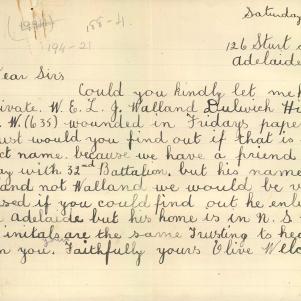 Saturday
(1991) 188-4.
194-21
126 Sturt S
Adelaide
ear Sirs
Could you kindly let me k
rivate. W. E. L. J. Walland Dulwich H
W. (635) wounded in Fridays pape
ust would you find out if that is
ct name. because we have a friend
y with 32nd Battalion, but his name
and not Walland we would be v
sed if you could find out he enl
adelaide but his home is in N. S
initals are the same Trusting to hea
m you. Faithfully yours Olive Welc